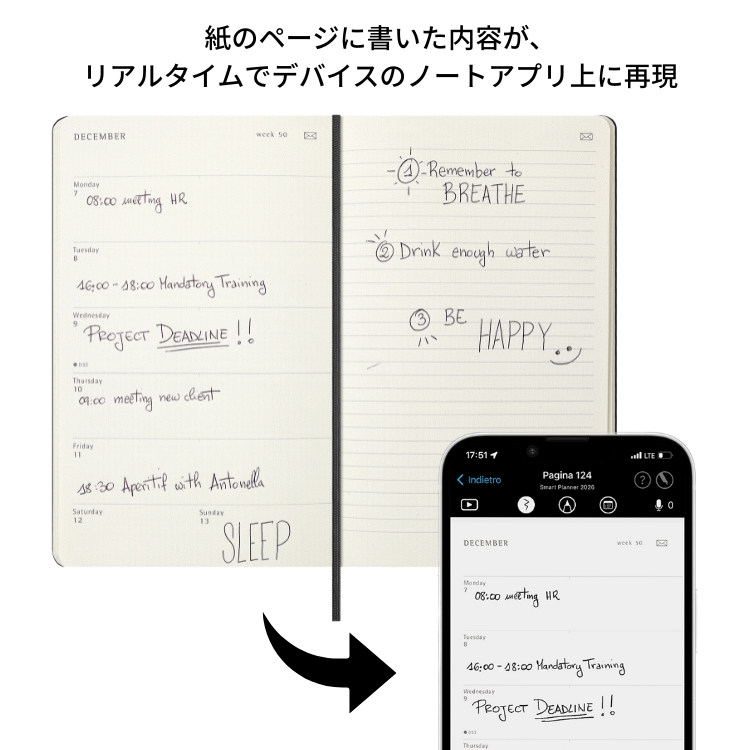 紙のページに書いた内容が、
リアルタイムでデバイスのノートアプリ上に再現
DECEMBER
week 50
Monday
7
08:00 meeting HR
Tuesday
8
16:00 - 18:00 Mandatory Training
Wednesday
9
PROJECT DEADLINE !!
Thursday
10
09:00 meeting new client
Friday
11
18:30 Aperitif with Antonella
Saturday
12
Sunday
13
SLEEP
1 Remember to
BREATHE
2 Drink enough water
3 BE
HAPPY
17:51
LTE
Indietro
Pagina 124
Smart Planner 2026
?
0
DECEMBER
week 50
Monday
7
08:00 meeting HR
Tuesday
8
16:00 - 18:00 Mandatory Training
Wednesday
9
PROJECT DEADLINE !!
Thursday